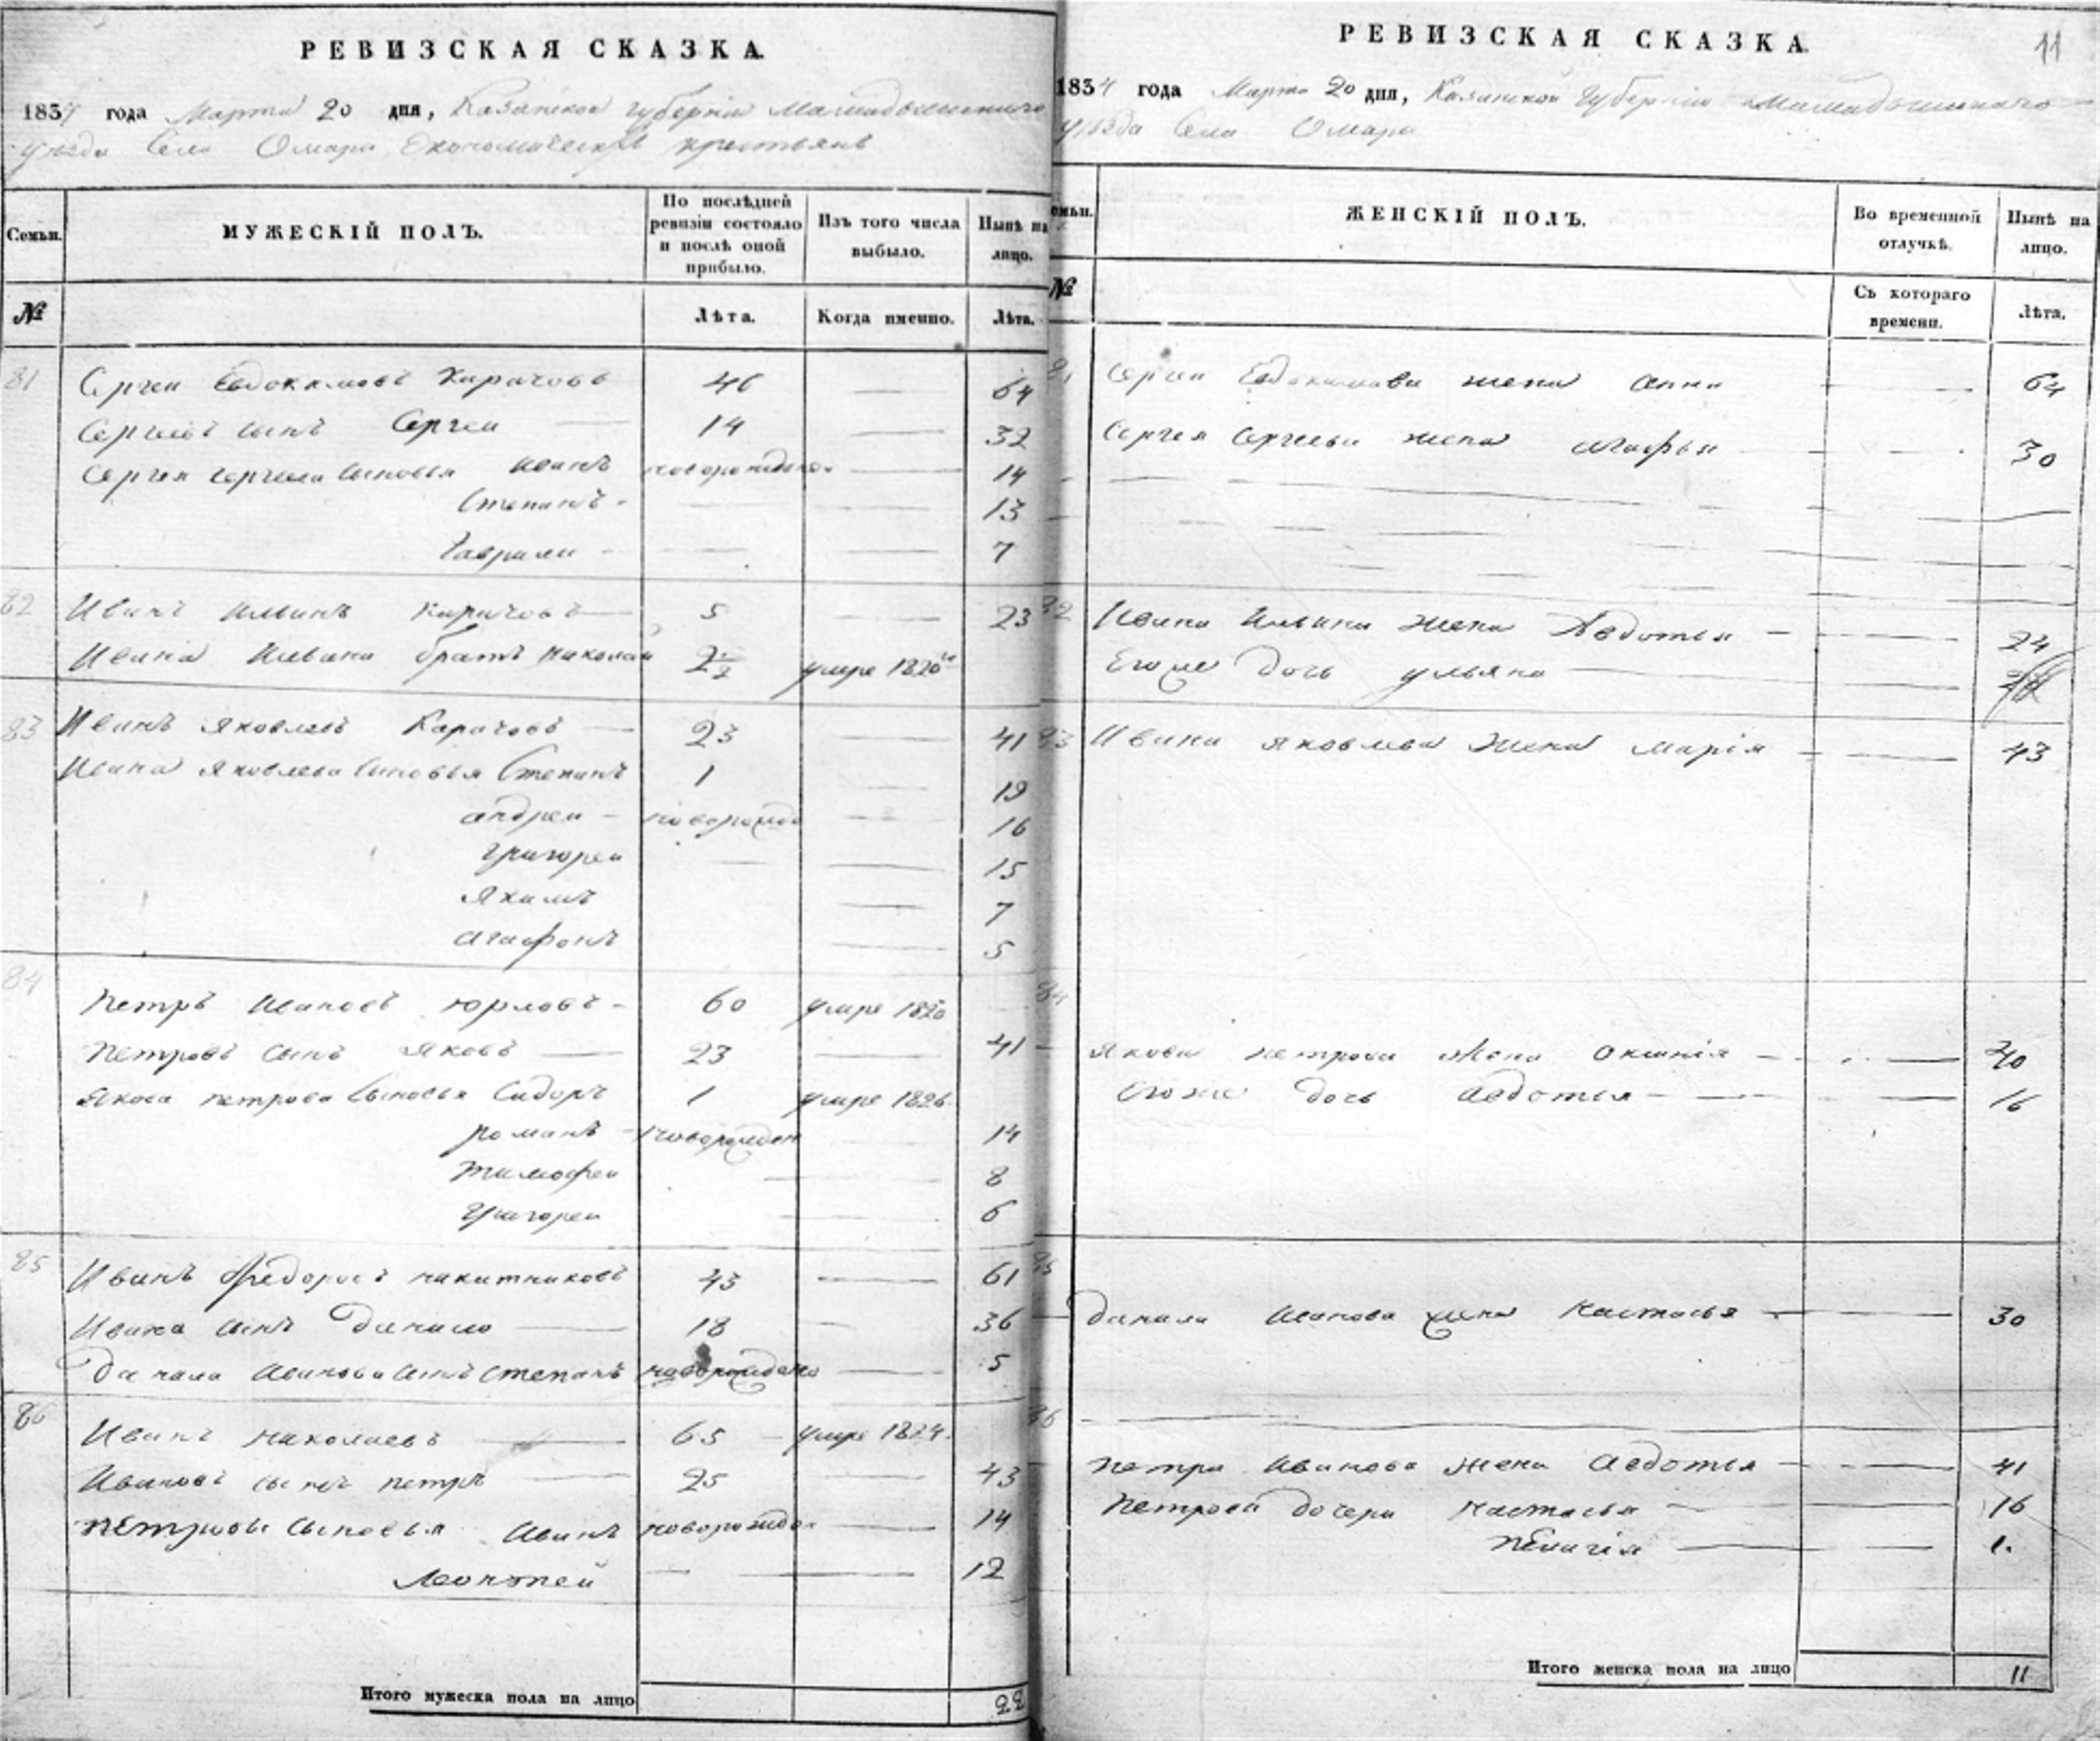 РЕВИЗСКАЯ СКАЗКА.
1834 года Марта 20 дня, Казанской губернии Мамадышскаго
уезда Села Омари Економическихъ крестьянъ
Семьи.
МУЖЕСКІЙ ПОЛЪ.
По последней ревизіи состояло и после оной прибыло.
Изъ того числа выбыло.
Ныне на лицо.
№
Лѣта.
Когда именно.
Лѣта.
81 Сергеи Евдокимовъ Карачовъ 46 — 64
Сергеевъ сынъ Сергеи — 14 — 32
Сергея Сергеева сыновья Иванъ новорожден — 14
Степанъ - — — 13
Гаврила - — — 7
82 Иванъ Ильинъ Карачовъ — 5 — 23
Ивана Ильина братъ Николай 2 1/2 умре 1820
83 Иванъ Яковлевъ Карачовъ — 23 — 41
Ивана Яковлева сыновья Степанъ 1 — 19
Андреи - новорожде — 16
Григореи — — 15
Якимъ — 7
Агафонъ — 5
84
Петръ Ивановъ Юрловъ - 60 умре 1820
Петровъ сынъ Яковъ — 23 — 41
Якова Петрова сыновья Сидоръ 1 умре 1826.
Романъ - новорожден 14
Тимофеи — 8
Григореи — 6
85 Иванъ Федоровъ Никитниковъ 43 — 61
Ивана сынъ Данило — 18 — 36
Данила Иванова сынъ Степанъ новорождено — 5
86 Иванъ Николаевъ — 65 - умре 1824.
Ивановъ сынъ Петръ — 25 — 43
Петровы сыновья Иванъ новорожде — 14
Леонтей — — 12
Итого мужеска пола на лицо 22
РЕВИЗСКАЯ СКАЗКА. 11
1834 года Марта 20 дня, Казанской Губерніи Мамадышскаго
уезда Села Омари
Семьи.
ЖЕНСКІЙ ПОЛЪ.
Во временной отлучкѣ.
Нынѣ на лицо.
№
Съ котораго времени.
Лѣта.
81 Сергеи Евдокимова жена Анна — 64
Сергея Сергеева жена Агафья — 30
82 Ивана Ильина жена Авдотья — 24
Егоже дочь Ульяна —
83 Ивана Яковлева жена Марія — 43
84
Якова Петрова жена Оксинія — 40
Егоже дочь Авдотья — 16
85
Данила Иванова жена Настасья — 30
86 —
Петра Иванова жена Авдотья — 41
Петровы дочери Настасья — 16
Пелагія — 1.
Итого женска пола на лицо 11